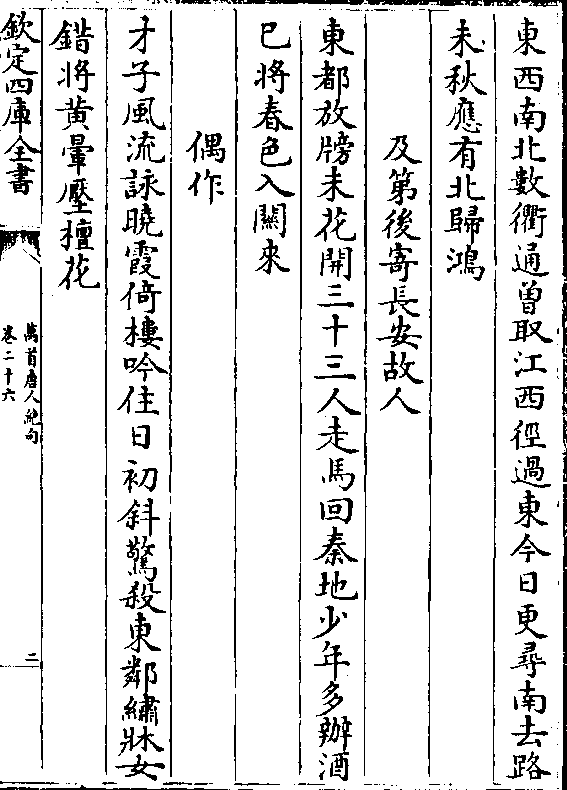 東西南北數衢通曾取江西徑過東今日更尋南去路
未秋應有北歸鴻
及第後寄長安故人
東都放牓未花開三十三人走馬回秦地少年多辦酒
已將春色入關來
偶作
才子風流詠曉霞倚樓吟住日初斜驚殺東鄰繡牀女
錯將黃暈壓檀花
欽定四庫全書
萬首唐人絶句
卷二十六
二